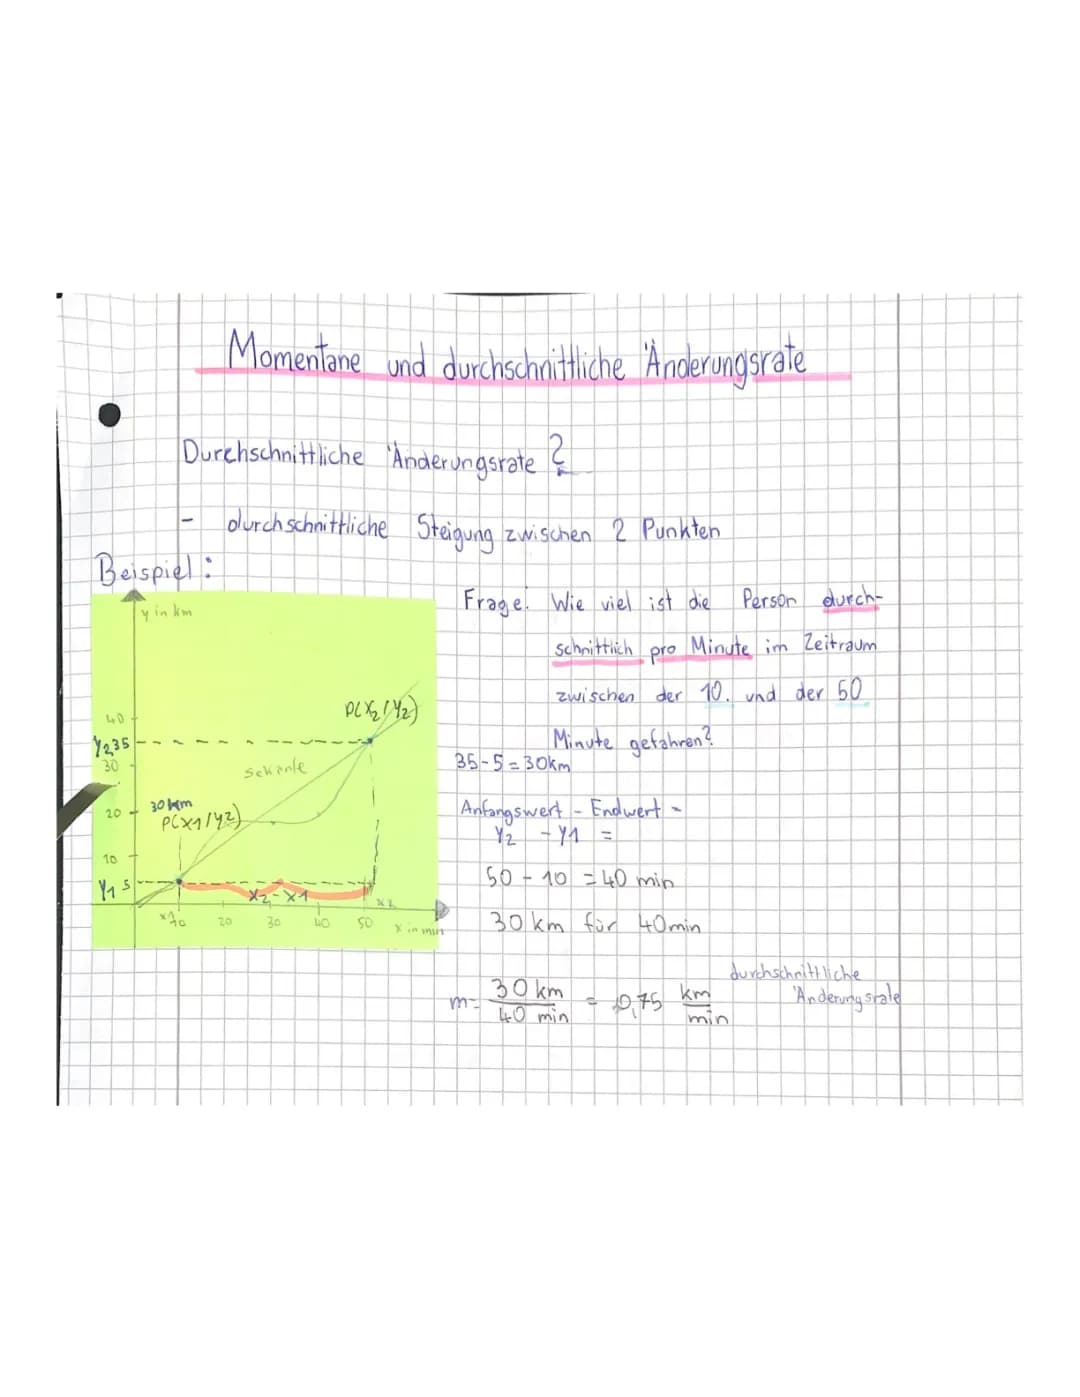 Momentane und durchschnittliche Änderungsrate
Durchschnittliche Änderungsrate?
- durchschnittliche Steigung zwischen 2 Punkten
Beispiel:
y in km
P(X2/Y2)
40
Y2 35
30
Sekante
20
30 km
P(X1/Y2)
10
Y1 5
X2-X1
x2
x1 10 20 30 40 50 x in min
Frage: Wie viel ist die Person durch-
schnittlich pro Minute im Zeitraum
zwischen der 10. und der 50
Minute gefahren?
35-5=30km
Anfangswert - Endwert =
Y2 - Y1 =
50 - 10 = 40 min
30 km für 40min
m= 30 km / 40 min = 0,75 km/min
durchschnittliche
Änderungsrate